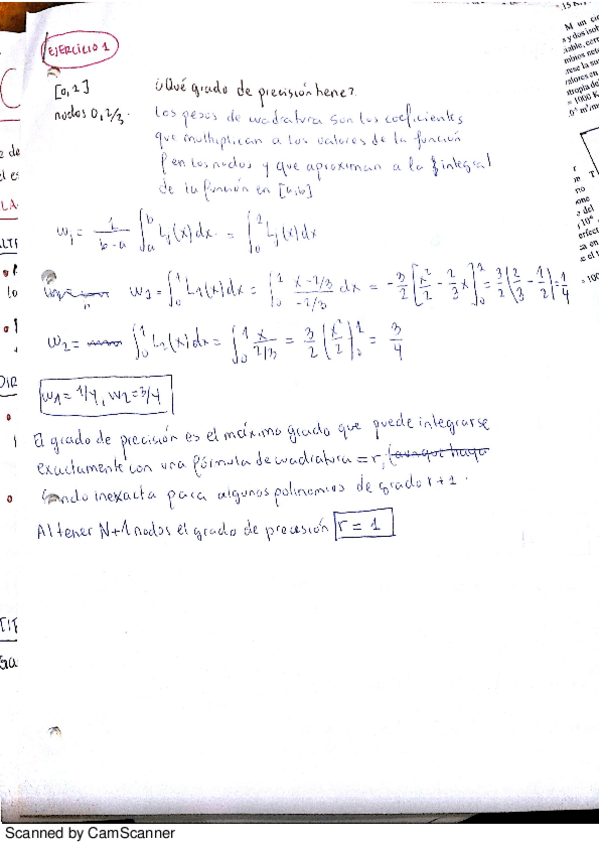 EJERCICIO 1
[0,1]
nodos 0, 2/3.
¿Qué grado de precisión tiene?
Los pesos de cuadratura son los coeficientes
que multiplican a los valores de la función
f en los nudos y que aproximan a la integral
de la función en [a,b]
w₁ = 1/(b-a) ∫ₐᵇ L₁(x)dx = ∫₀¹ L₁(x)dx
w₁ = ∫₀¹ L₁(x)dx = ∫₀¹ (x-2/3)/(-2/3) dx = -3/2 [x²/2 - 2/3 x]₀¹ = 3/2 (2/3 - 1/2) = 1/4
w₂ = ∫₀¹ L₂(x)dx = ∫₀¹ x/(2/3) = 3/2 [x²/2]₀¹ = 3/4
w₁ = 1/4, w₂ = 3/4
El grado de precisión es el máximo grado que puede integrarse
exactamente con una fórmula de cuadratura = r, (aunque haya
siendo inexacta para algunos polinomios de grado r+1.
Al tener N+1 nodos el grado de precisión r = 1
Scanned by CamScanner